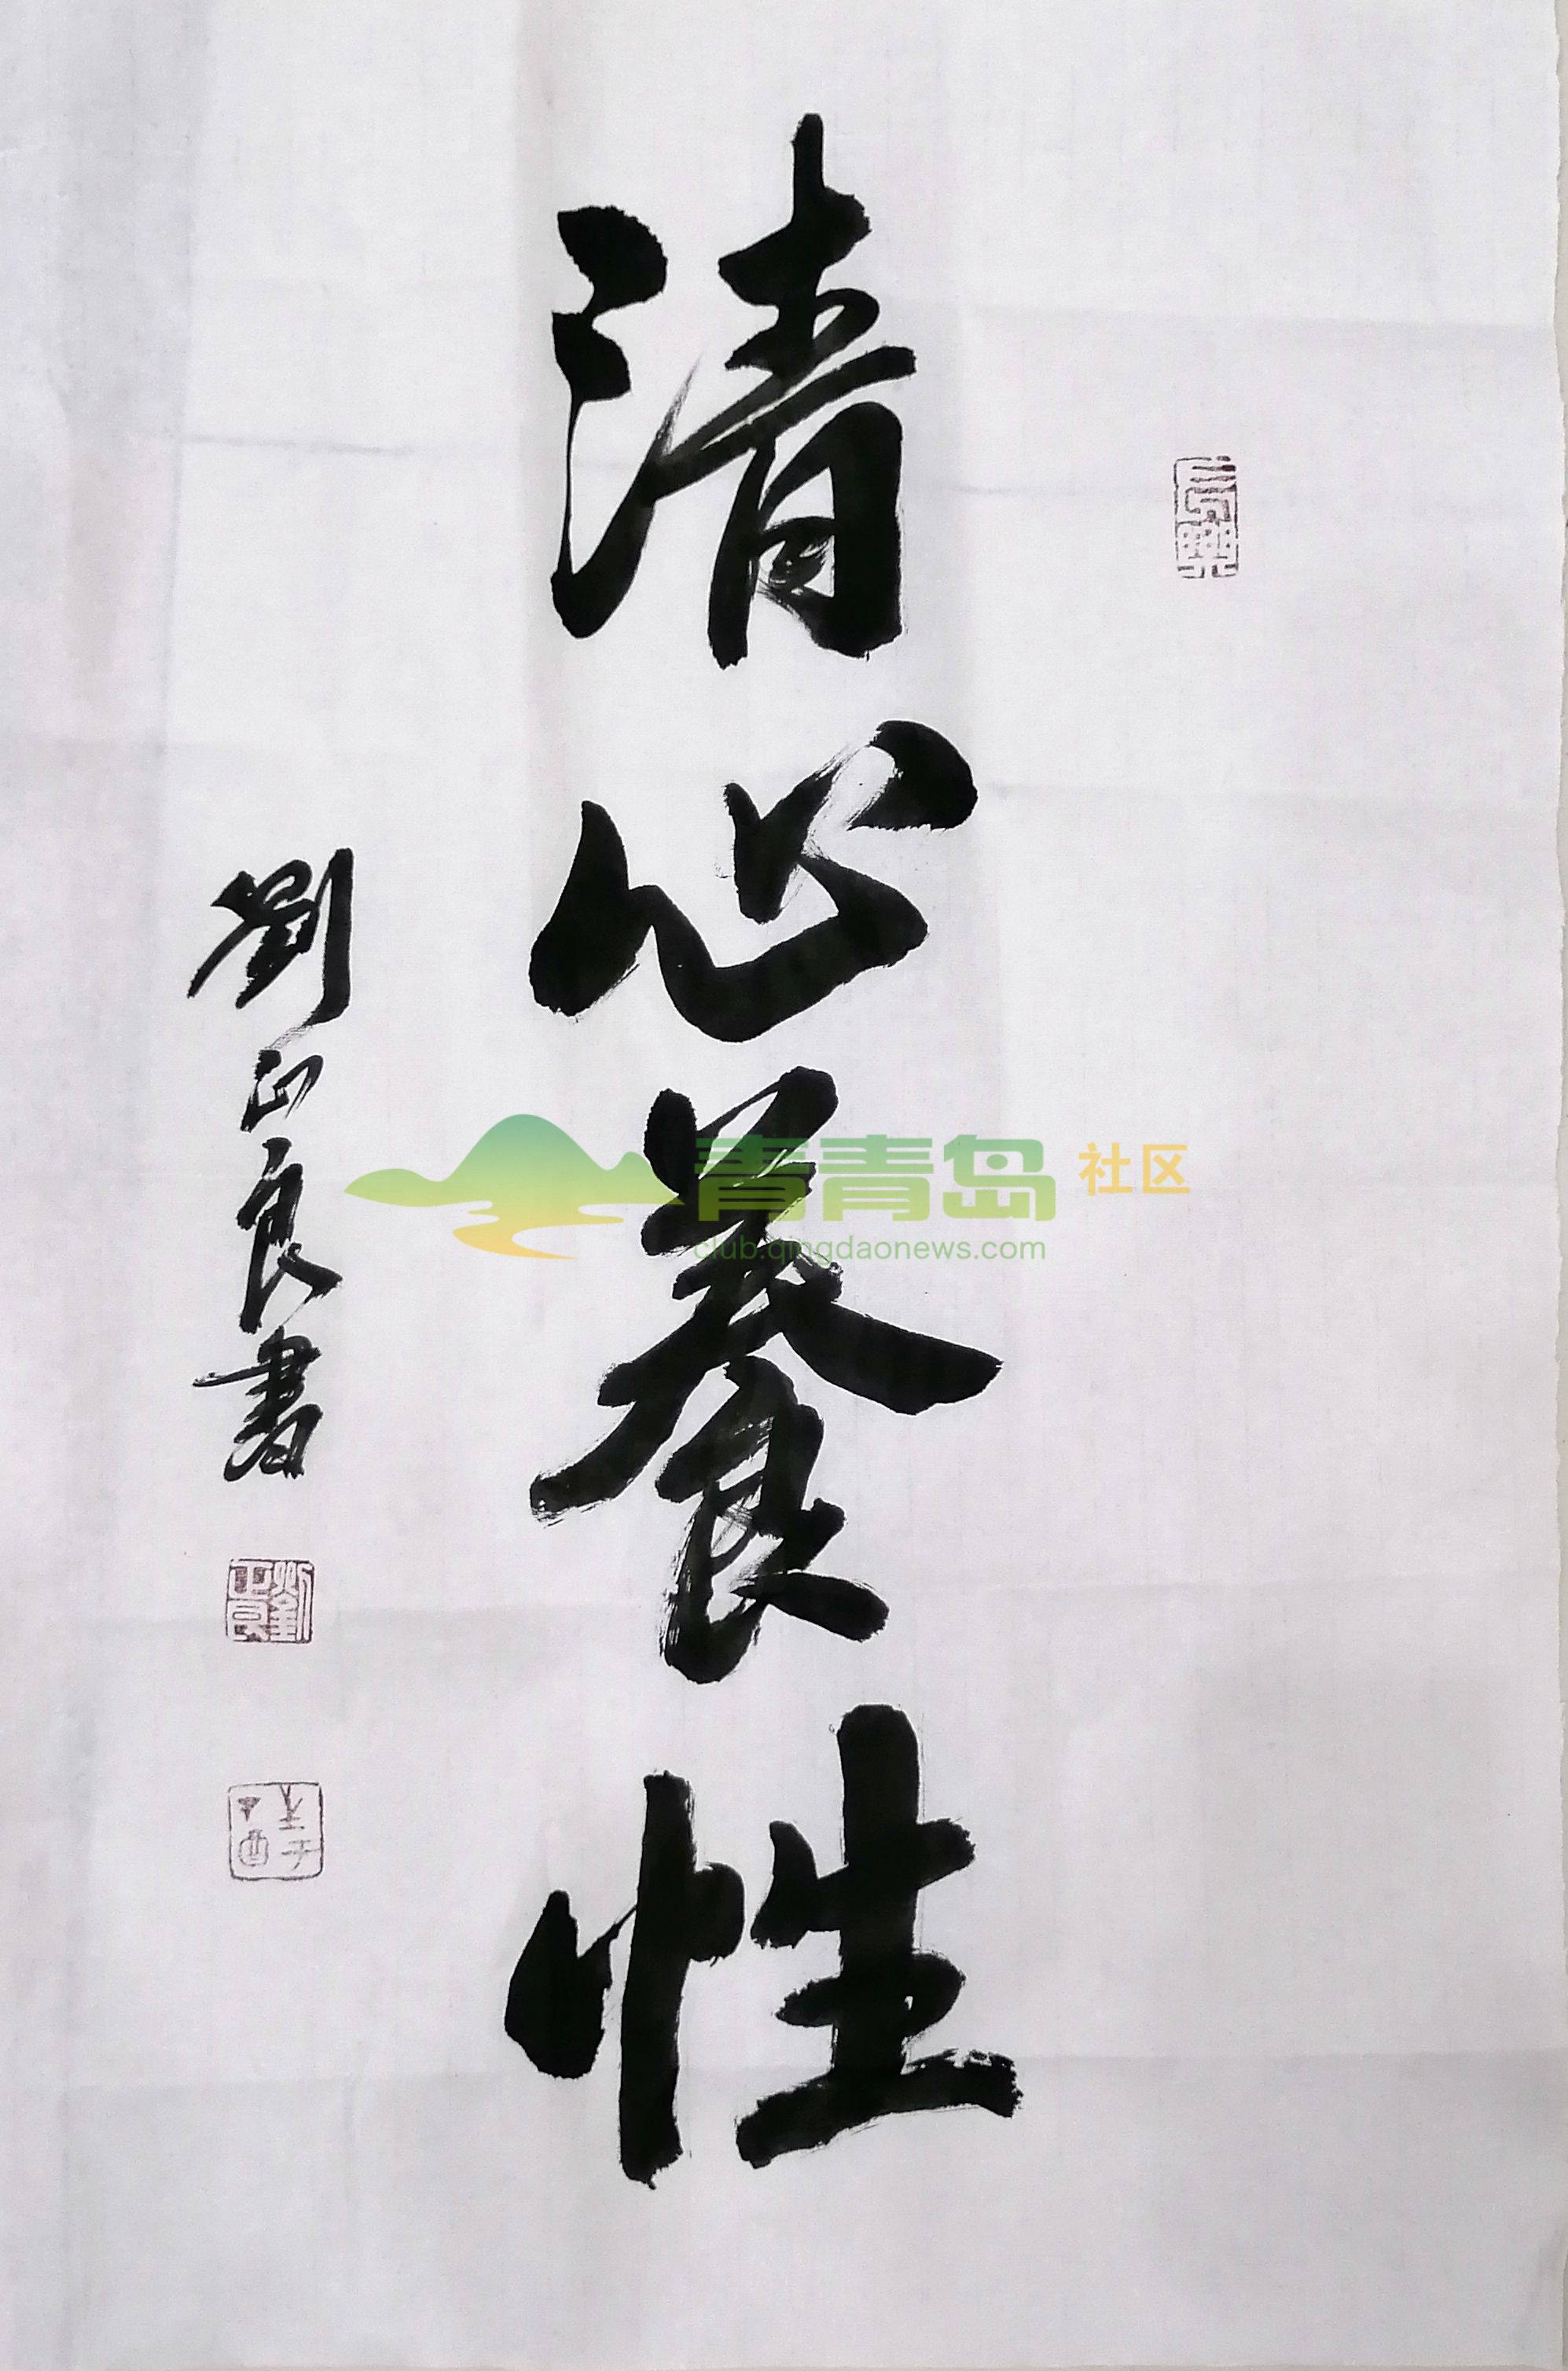 清心養性
劉正良書
劉正良
青青岛 社区
club.qingdaonews.com